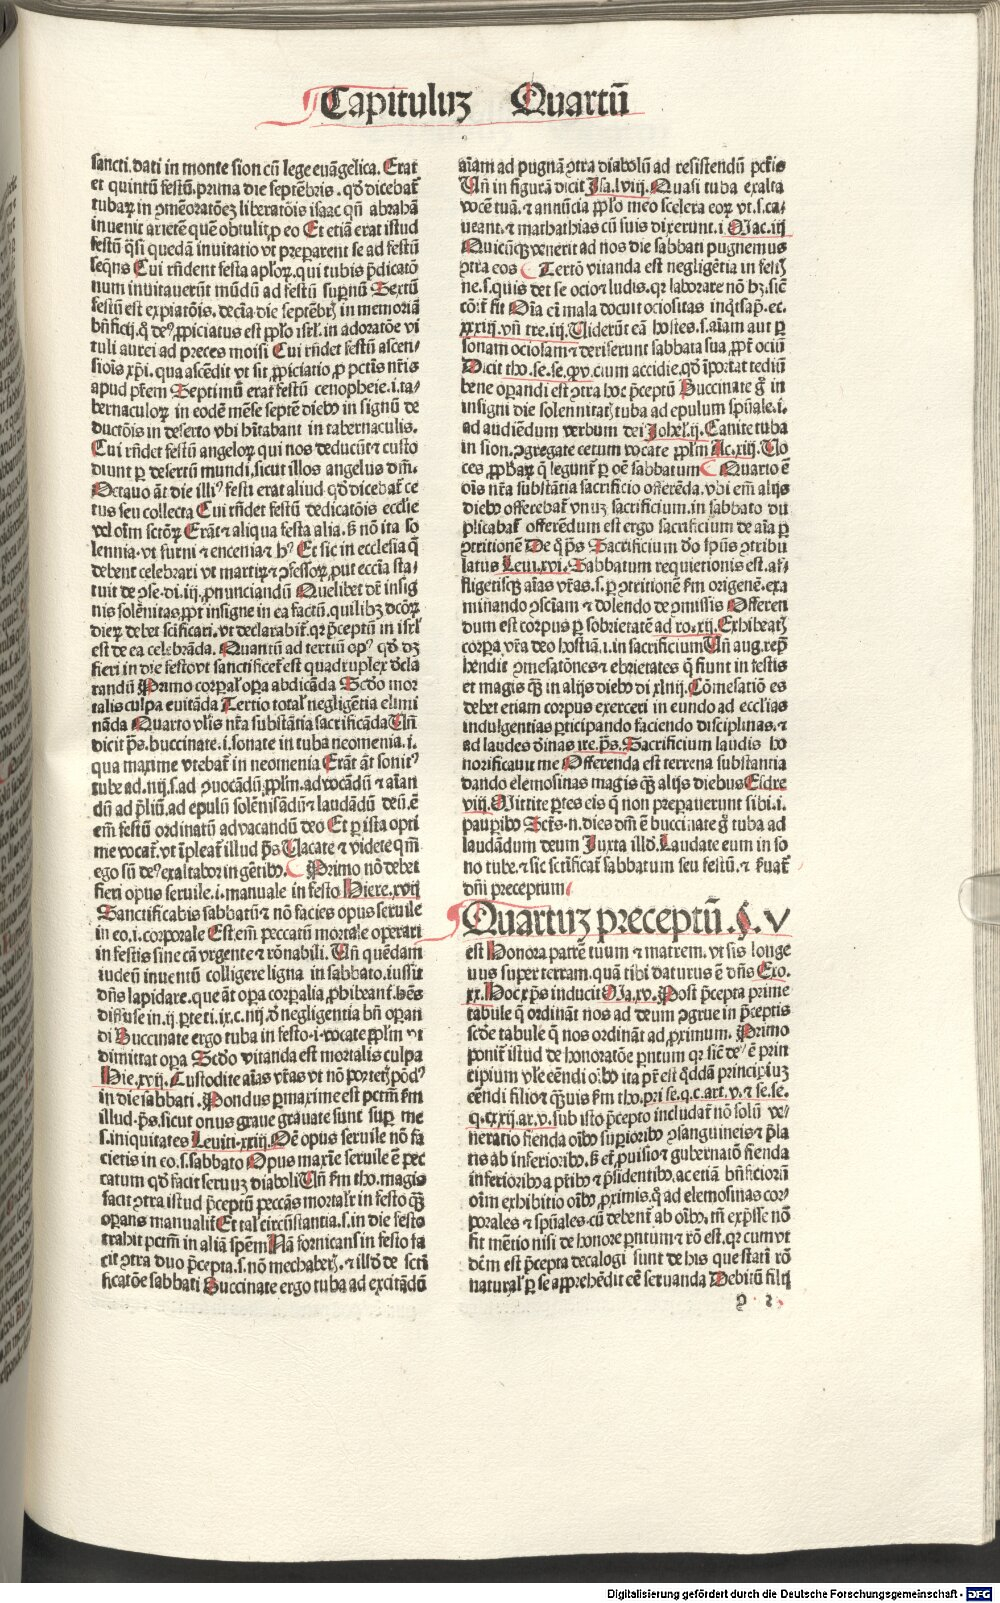 Capituluʒ Quartū
sancti. dati in monte sion cū lege euāgelica. Erat
et quintū festū. prima die septēbris. qđ dicebať
tubaꝝ in ꝯmēoratōeʒ liberatōis isaac qn̄ abrahā
inuenit arietē quē obtulit ꝓ eo Et etiā erat istud
festū q̄si quedā inuitatio vt preparent se ad festū
seqn̄s Cui rn̄dent festa apl'oꝝ. qui tubis p̄dicatō
num inuitauerūt mūdū ad festū supnū Sextū
festū est expiatōis. decīa die septēbrꝭ in memoriā
bn̄ficij. q̄ deꝰ ꝓpiciatus est ppl'o isrl'. in adoratōe vi
tuli aurei ad preces moisi Cui rn̄det festū ascen/
siois xp̄i. qua ascēdit vt sit ꝓpiciatio ꝓ pctīs nr̄is
apud pr̄em Septimū erat festū cenopheie. i. ta/
bernaculoꝝ in eodē mēse septē diebꝰ in signū de
ductōis in deserto vbi hītabant in tabernaculis.
Cui rn̄det festū angeloꝝ qui nos deducūt ⁊ custo
diunt ꝑ desertū mundi. sicut illos angelus dn̄i.
Octauo āt die illiꝰ festi erat aliud qđ dicebať ce
tus seu collecta Cui rn̄det festū dedicatōis ecclie
vel oīm sctōꝝ Erāt ⁊ aliqua festa alia. sꝫ nō ita so
lennia. vt furni ⁊ encenia ⁊ hꝰ Et sic in ecclesia q̄
debent celebrari vt martiꝝ ⁊ ꝯfessoꝝ, put eccīa sta/
tuit de ꝯse. di. iij. ꝓnunciandū Quelibet dr̄ insig
nis solēnitas, ꝓpt insigne in ea factū. quilibꝫ dcōꝝ
dieꝝ debet scificari. vt declarabiť. qr p̄ceptū in isrl'
est de ea celebrāda. Quantū ad tertiū opꝰ qđ dꝫ
fieri in die festo vt sanctificeť est quadruplex dcla
randū Primo corpal' opa abdicāda Scđo mor
talis culpa euitāda Tertio total' negligētia elimi
nāda Quarto vl'is nr̄a substātia sacrificāda Vn̄
dicit p̄s. buccinate. i. sonate in tuba neomenia. i.
qua maxime vtebāť in neomenia Erāt āt sonitꝰ
tube ad. iiij. s. ad ꝓuocādū ppl'm. aduocādū ⁊ aīan
dū ad p̄liū. ad epulū solēnisādū ⁊ laudādū deū. ē
em̄ festū ordinatū ad vacandū deo Et ꝑ ista opti
me vocať. vt īpleať illud p̄s Vacate ⁊ videte qm̄
ego sū deꝰ exaltabor in gētibꝰ. Primo nō debet
fieri opus seruile. i. manuale in festo Hiere. xvij
Sanctificabis sabbatū ⁊ nō facies opus seruile
in eo. i. corporale Est em̄ peccatū mortale operari
in festis sine cā vrgente ⁊ rōnabili. Vn̄ quēdam
iudeū inuentū colligere ligna in sabbato. iussit
dn̄s lapidare. que āt opa corpalia, phibeant. hēs
diffuse in. ij. pte ti. ix. c. iiij. đ negligentia bn̄ opan
di Buccinate ergo tuba in festo. i. vocate ppl'm vt
dimittat opa Scđo vitanda est mortalis culpa
Hie. xvij. Custodite aīas vr̄as vt nō portetꝭ pōdꝰ
in die sabbati. Pondus ꝑ maxime est pctm̄ fm
illud. p̄s. sicut onus graue grauate sunt sup me
.s. iniquitates Leuiti. xxiij. Oē opus seruile nō fa
cietis in eo. s. sabbato Opus maxīe seruile ē pec
catum qđ facit seruuʒ diaboli Vn̄ fm tho. magis
facit ꝯtra istud p̄ceptū peccās mortal'r in festo qꝫ
opans manualiť Et tal' circūstantia. s. in die festo
trahit pctm̄ in aliā spēm Nā fornicans in festo fa
cit ꝯtra duo p̄cepta. s. nō mechaberꝭ. ⁊ illđ de scti
ficatōe sabbati Buccinate ergo tuba ad excitādū
aīam ad pugnā ꝯtra diabolū ad resistendū pctīs
Vn̄ in figurā dicit Isa. lviij. Quasi tuba exalta
vocē tuā. ⁊ annūcia ppl'o meo scelera eoꝝ vt. s. ca/
ueant. ⁊ mathathias cū suis dixerunt. i Mac. iij
Quicūqꝫ venerit ad nos die sabbati pugnemus
ꝯtra eos Tertō vitanda est negligētia in festꝭ
ne. s. quis det se ocio ⁊ ludis. qr laborare nō hꝫ. sic
cōť fit Oīa ēi mala docuit ociositas inqt sap. ec.
xxxiij. vn̄ tre. iij. Viderūt eā hostes. s. aīam aut ꝑ
sonam ociosam ⁊ deriserunt sabbata sua, ꝓpt ociū
Dicit tho. se. se. qō. cium accidie. qđ īportat tediū
bene opandi est ꝯtra hoc p̄ceptū Buccinate g̊ in
insigni die solennitatꝭ tuba ad epulum spūale. i.
ad audiēdum verbum dei Johel. ij. Canite tuba
in sion. ꝯgregate cetum vocate ppl'm Ac. xiij. Vo
ces ꝓphaꝝ q̄ legunť ꝑ oē sabbatum Quarto ē
oīs nr̄a substātia sacrificio offerēda. vbi em̄ alijs
diebꝰ offerebať vnuʒ sacrificium. in sabbato du
plicabať offerēdum est ergo sacrificium de aīa ꝑ
ꝯtritionē De q̊ p̄s Sacrificium đo spūs ꝯtribu
latus Leui. xvi. Sabbatum requietionis est. af/
fligetisqꝫ aīas vr̄as. s. ꝑ ꝯtritionē fm origenē. exa
minando ꝯsciam ⁊ dolendo de ꝯmissis Offeren
dum est corpus ꝑ sobrietatē ad ro. xij. Exhibeatꝭ
corpa vr̄a deo hostiā. i. in sacrificium Vn̄ aug. rep̄
hendit ꝯmesatōnes ⁊ ebrietates q̄ fiunt in festis
et magis qꝫ in alijs diebꝰ di xliiij. Cōmesatiō es
debet etiam corpus exerceri in eundo ad ecclias
indulgentias pticipando faciendo disciplinas. ⁊
ad laudes đinas ire. p̄s. Sacrificium laudis ho
norificauit me Offerenda est terrena substantia
dando elemosinas magis qꝫ alijs diebus Esdre
viij. Mittite ptes eis q̄ non preparauerunt sibi. i.
paupibꝰ Scīs. n. dies dn̄i ē buccinate g̊ tuba ad
laudādum deum Juxta illđ. Laudate eum in so
no tube. ⁊ sic sctificať sabbatum seu festū. ⁊ ẜuať
dn̄i preceptum
Quartuʒ preceptū. §. V
est Honora patrē tuum ⁊ matrem. vt sis longe
uus super terram. quā tibi daturus ē dn̄s Exo.
xx. Hoc xp̄s inducit Ma. xv. Post p̄cepta prime
tabule q̄ ordināt nos ad deum ꝯgrue in p̄ceptis
scđe tabule q̄ nos ordināt ad ꝓximum. Primo
poniť istud de honoratōe pntum qr sic deꝰ ē prin
cipium vl'e cēndi oībꝰ ita pr̄ est q̄ddā principiuʒ
cēndi filio ⁊ qꝫuis fm tho. pri se. q. c. art. v. ⁊ se. se.
q. cxxij. ar. v. sub isto p̄cepto includať nō solū ve/
neratio fienda oībꝰ supioribꝰ ꝯsanguineis ⁊ p̄la
tis ab inferioribꝰ. sꝫ et ꝓuisio ⁊ gubernatiō fienda
inferioribꝰ a ptibꝰ ⁊ p̄sidentibꝰ. ac etiā bn̄ficiorū
oīm exhibitio oībꝰ, ꝓximis. q̄ ad elemosinas cor/
porales ⁊ spūales. cū debent ab oībꝰ, tn̄ exp̄sse nō
fit mētio nisi de honore pntum ⁊ rō est. qr cum vt
dēm est p̄cepta decalogi sunt de his que statī rō
natural' ꝑ se apprehēdit cē seruanda Debitū filij
Digitalisierung gefördert durch die Deutsche Forschungsgemeinschaft - DFG